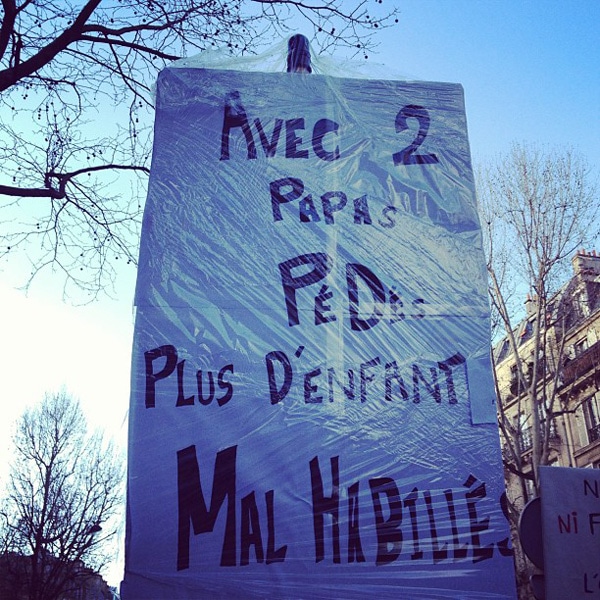 AVEC 2
PAPAS
PÉDÈS
PLUS D'ENFANT
MAL HABILLÉS
N
NI F
L'